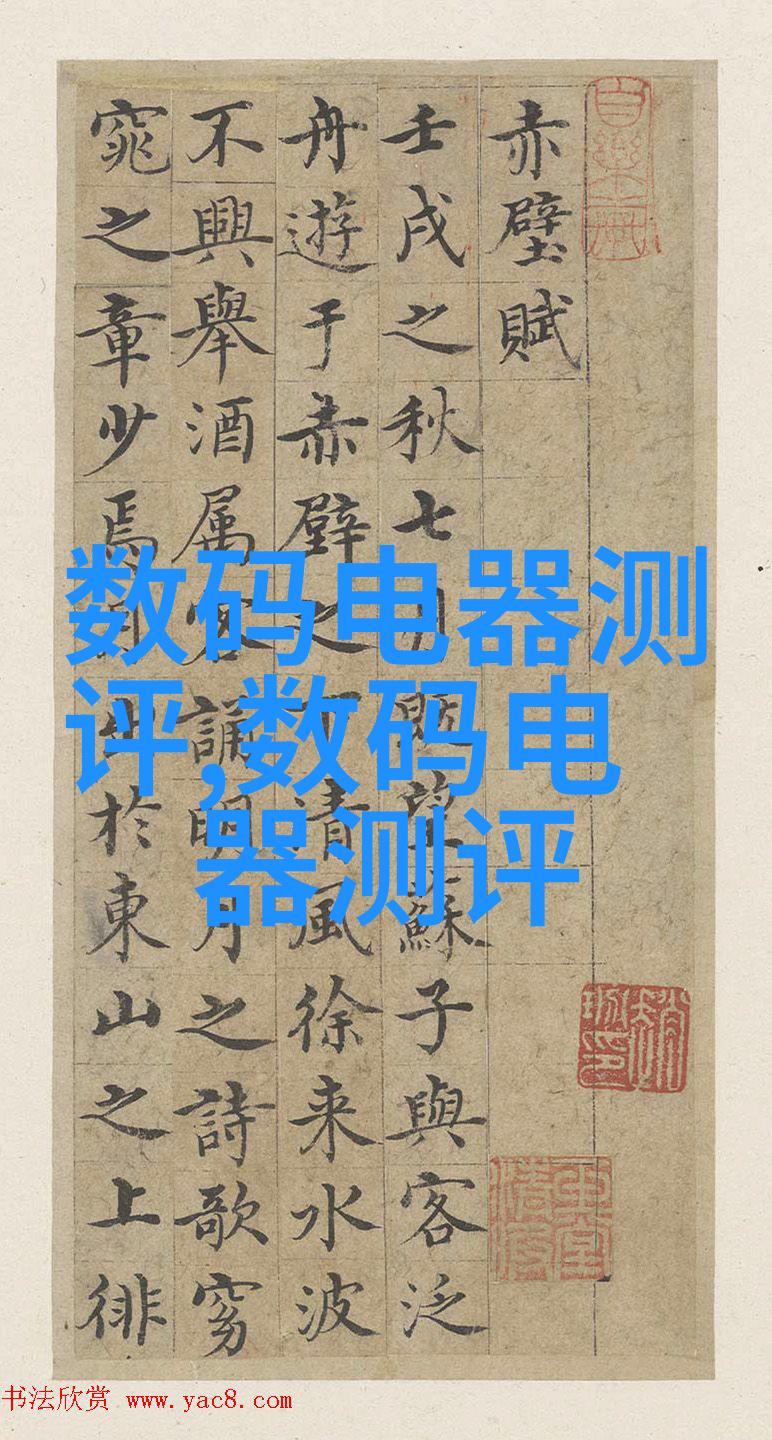 赤壁賦
壬戌之秋七月既望蘇子與客泛
舟遊于赤壁之下清風徐来水波
不興舉酒属客誦明月之詩歌窈
窕之章少焉月出於東山之上徘
数码电器测
评,数码电
器测评
书法欣赏 www.yac8.com